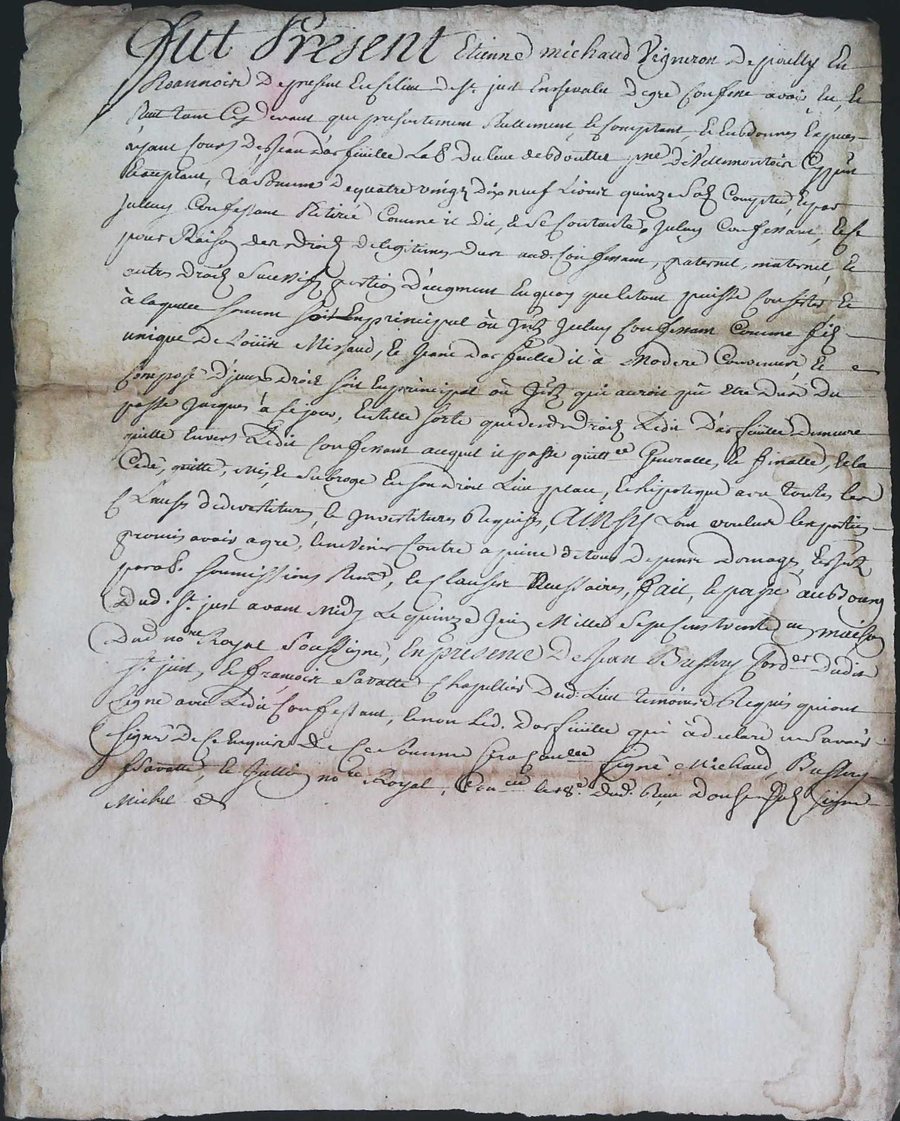 Fut Présent Etienne michaud Vigneron de pouilly En
Roannois de present En ce lieu de st. just En chevalet de gre confesse avoir Eu
tant cy devant que presentement Reellement & comptant
ayant cours de Jean darfeuille
acceptant, La Somme de quatre vingt dix neuf Livres quinze sols Comptée, & par
Juluy Confessant Retirée Comme il dit, & se contente Juluy Confessant, &
pour Raison des droits de legitimes dus aud. Confessant, paternel, maternel, &
autres droits successifs portion d'augment En quoy que le tout puisse Consister &
à laquelle somme soit En principal où Juluy Confessant comme fils
unique de & Jeane darfeuille il à Modéré Convenu &
composé d'jceux droits soit En principal où qui auroit pû Etre dus du
passé Jusques à ce jour, En telle sorte que desd. droits Ledit darfeuille demeure
quitte Envers Ledit Confessant auquel il passe quittce Generalle, & finalle, & la
Cédé, quitté, mis, & subrogé En son droit Lieu place, & hipotèque avec toutes les
Clauses de devestiture, & Investiture Requises, AINSY L'ont voulu les parties
promis avoir agré, & ne venir Contre a peine de tous depens domages, &
parob. soumissions Renon, & clauses Necessaires, Fait, & passé au bourg
dud. st. just avant Midy Le quinze Juin Mille Sept Cents trente maison
dud nore Royal Soussigné, En presence de Jean Bussery Cordier dudit
st. just, & françois favatte Chapellier dud. Lieu temoins Requis qui ont
Signé avec Ledit Confessant, & non Led. darfeuille qui à déclaré ne sçavoir
signer de ce Enquis & Sommé Signé Michaud, Bussery
favatte, & nore Royal, le 18e. dud. Reçu douze sols signé
Michel